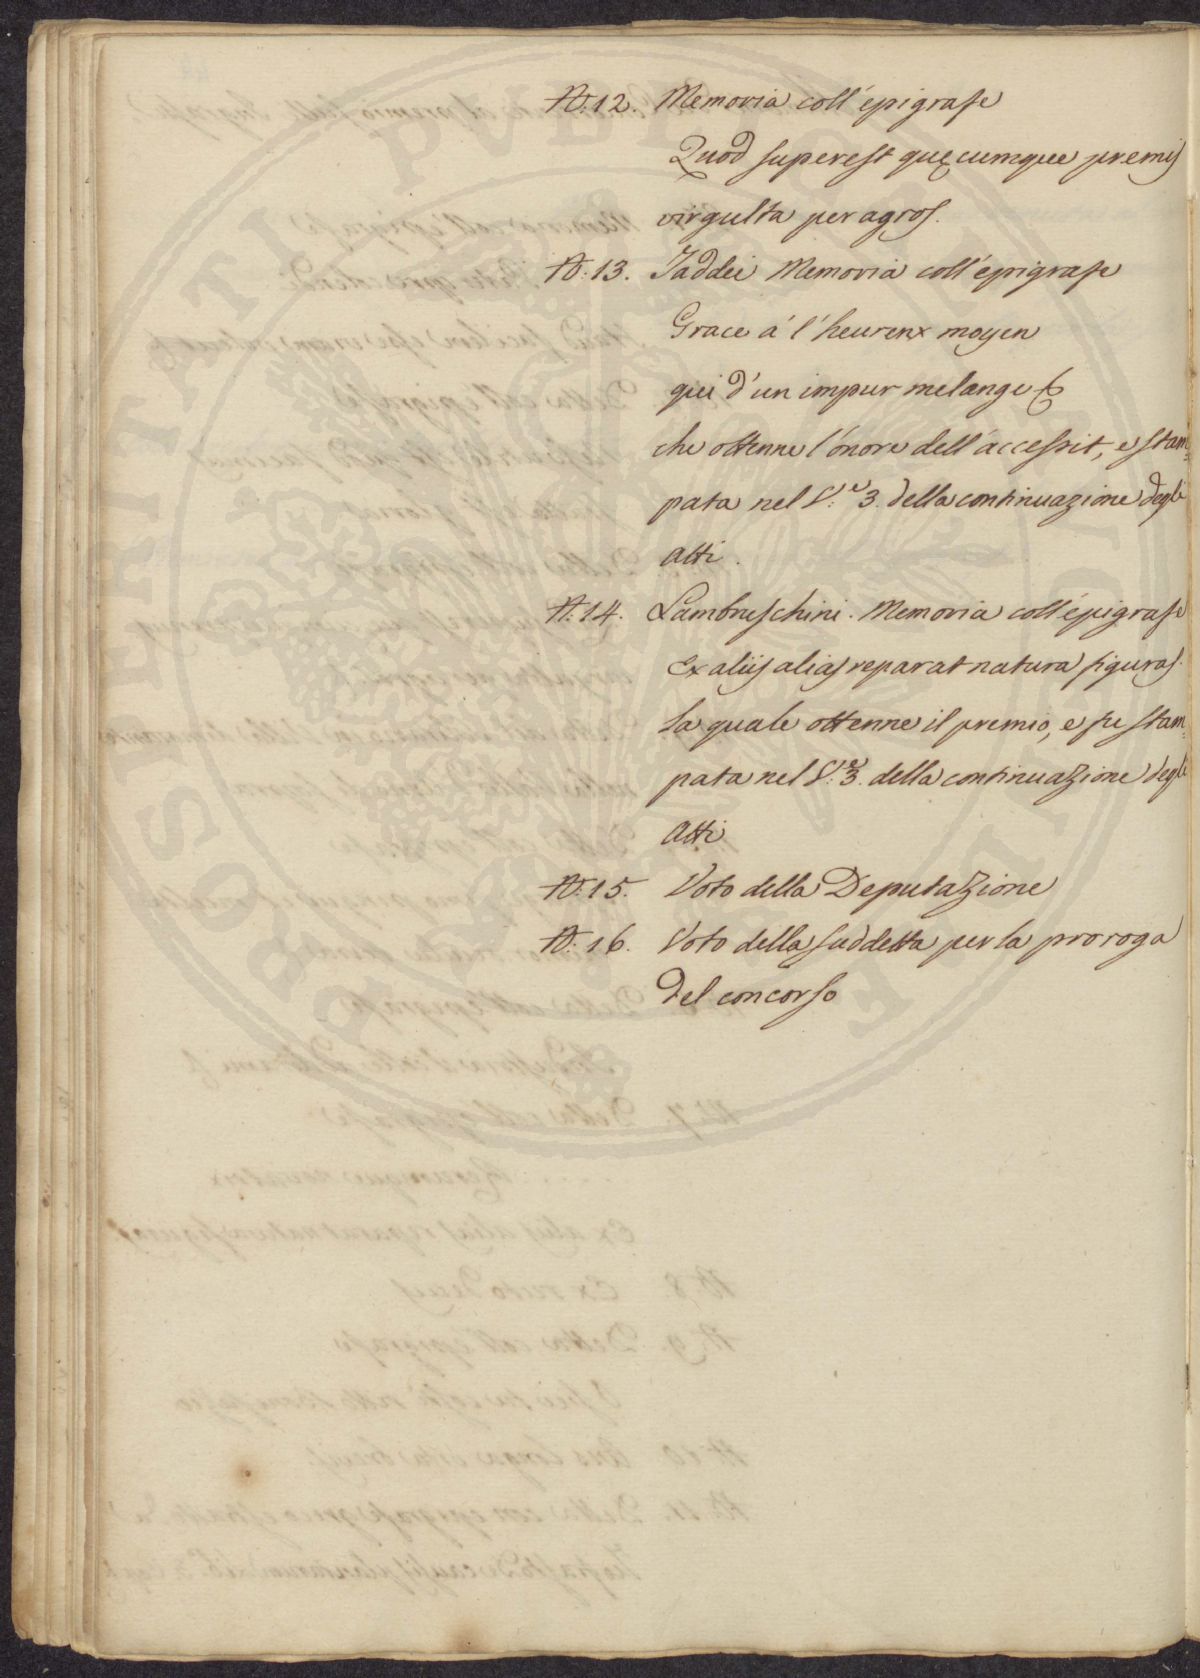 N. 12. Memoria coll'epigrafe
Quod superest quęcumque premis
virgulta per agros.
N. 13. Taddei Memoria coll'epigrafe
Grace á l'heureux moyen
qui d'un impur melange &
che ottenne l'onore dell'accessit, e stam=
pata nel V.e 3. della continuazione degli
Atti.
N. 14. Lambruschini. Memoria coll'epigrafe
Ex aliis alias reparat natura figuras.
la quale ottenne il premio, e fu stam=
pata nel V.e 3. della continuazione degli
Atti
N. 15. Voto della Deputazione
N. 16. Voto della suddetta per la proroga
del concorso